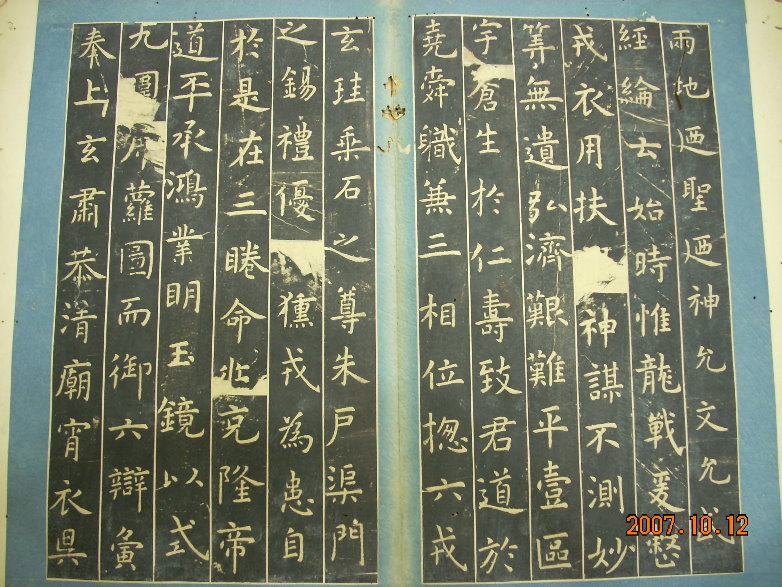 兩地廼聖廼神允文允武
經綸云始時惟龍戰爰整
戎衣用扶神謀不測妙
筭無遺弘濟艱難平壹區
宇蒼生於仁壽致君道於
堯舜職兼三相位揔六戎
玄珪乘石之尊朱戶渠門
之錫禮優獯戎為患自
於是在三睠命兆克隆帝
道丕承鴻業明玉鏡以式
九圍蘿圖而御六辯寅
奉上玄肅恭清廟宵衣昃
2007.10.12